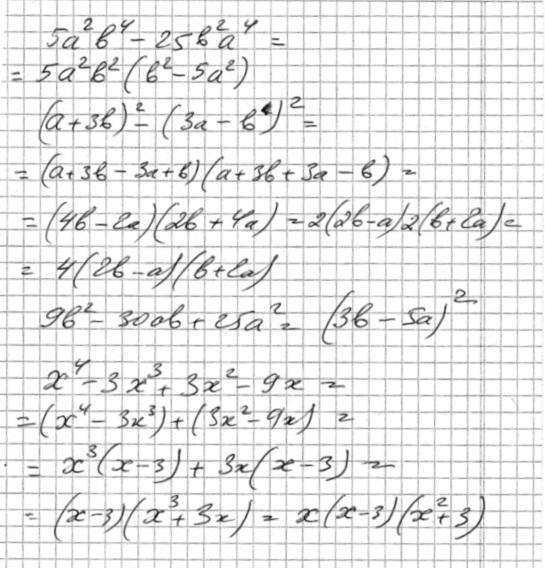 5a²b⁴ - 25b²a⁴ =
= 5a²b²(b² - 5a²)
(a+3b)² - (3a - b)² =
= (a+3b - 3a+b)(a+3b+3a - b) =
= (4b - 2a)(2b + 4a) = 2(2b-a)2(b+2a) =
= 4(2b-a)(b+2a)
9b² - 30ab + 25a² = (3b - 5a)²
x⁴ - 3x³ + 3x² - 9x =
= (x⁴ - 3x³) + (3x² - 9x) =
= x³(x-3) + 3x(x-3) =
= (x-3)(x³+3x) = x(x-3)(x²+3)